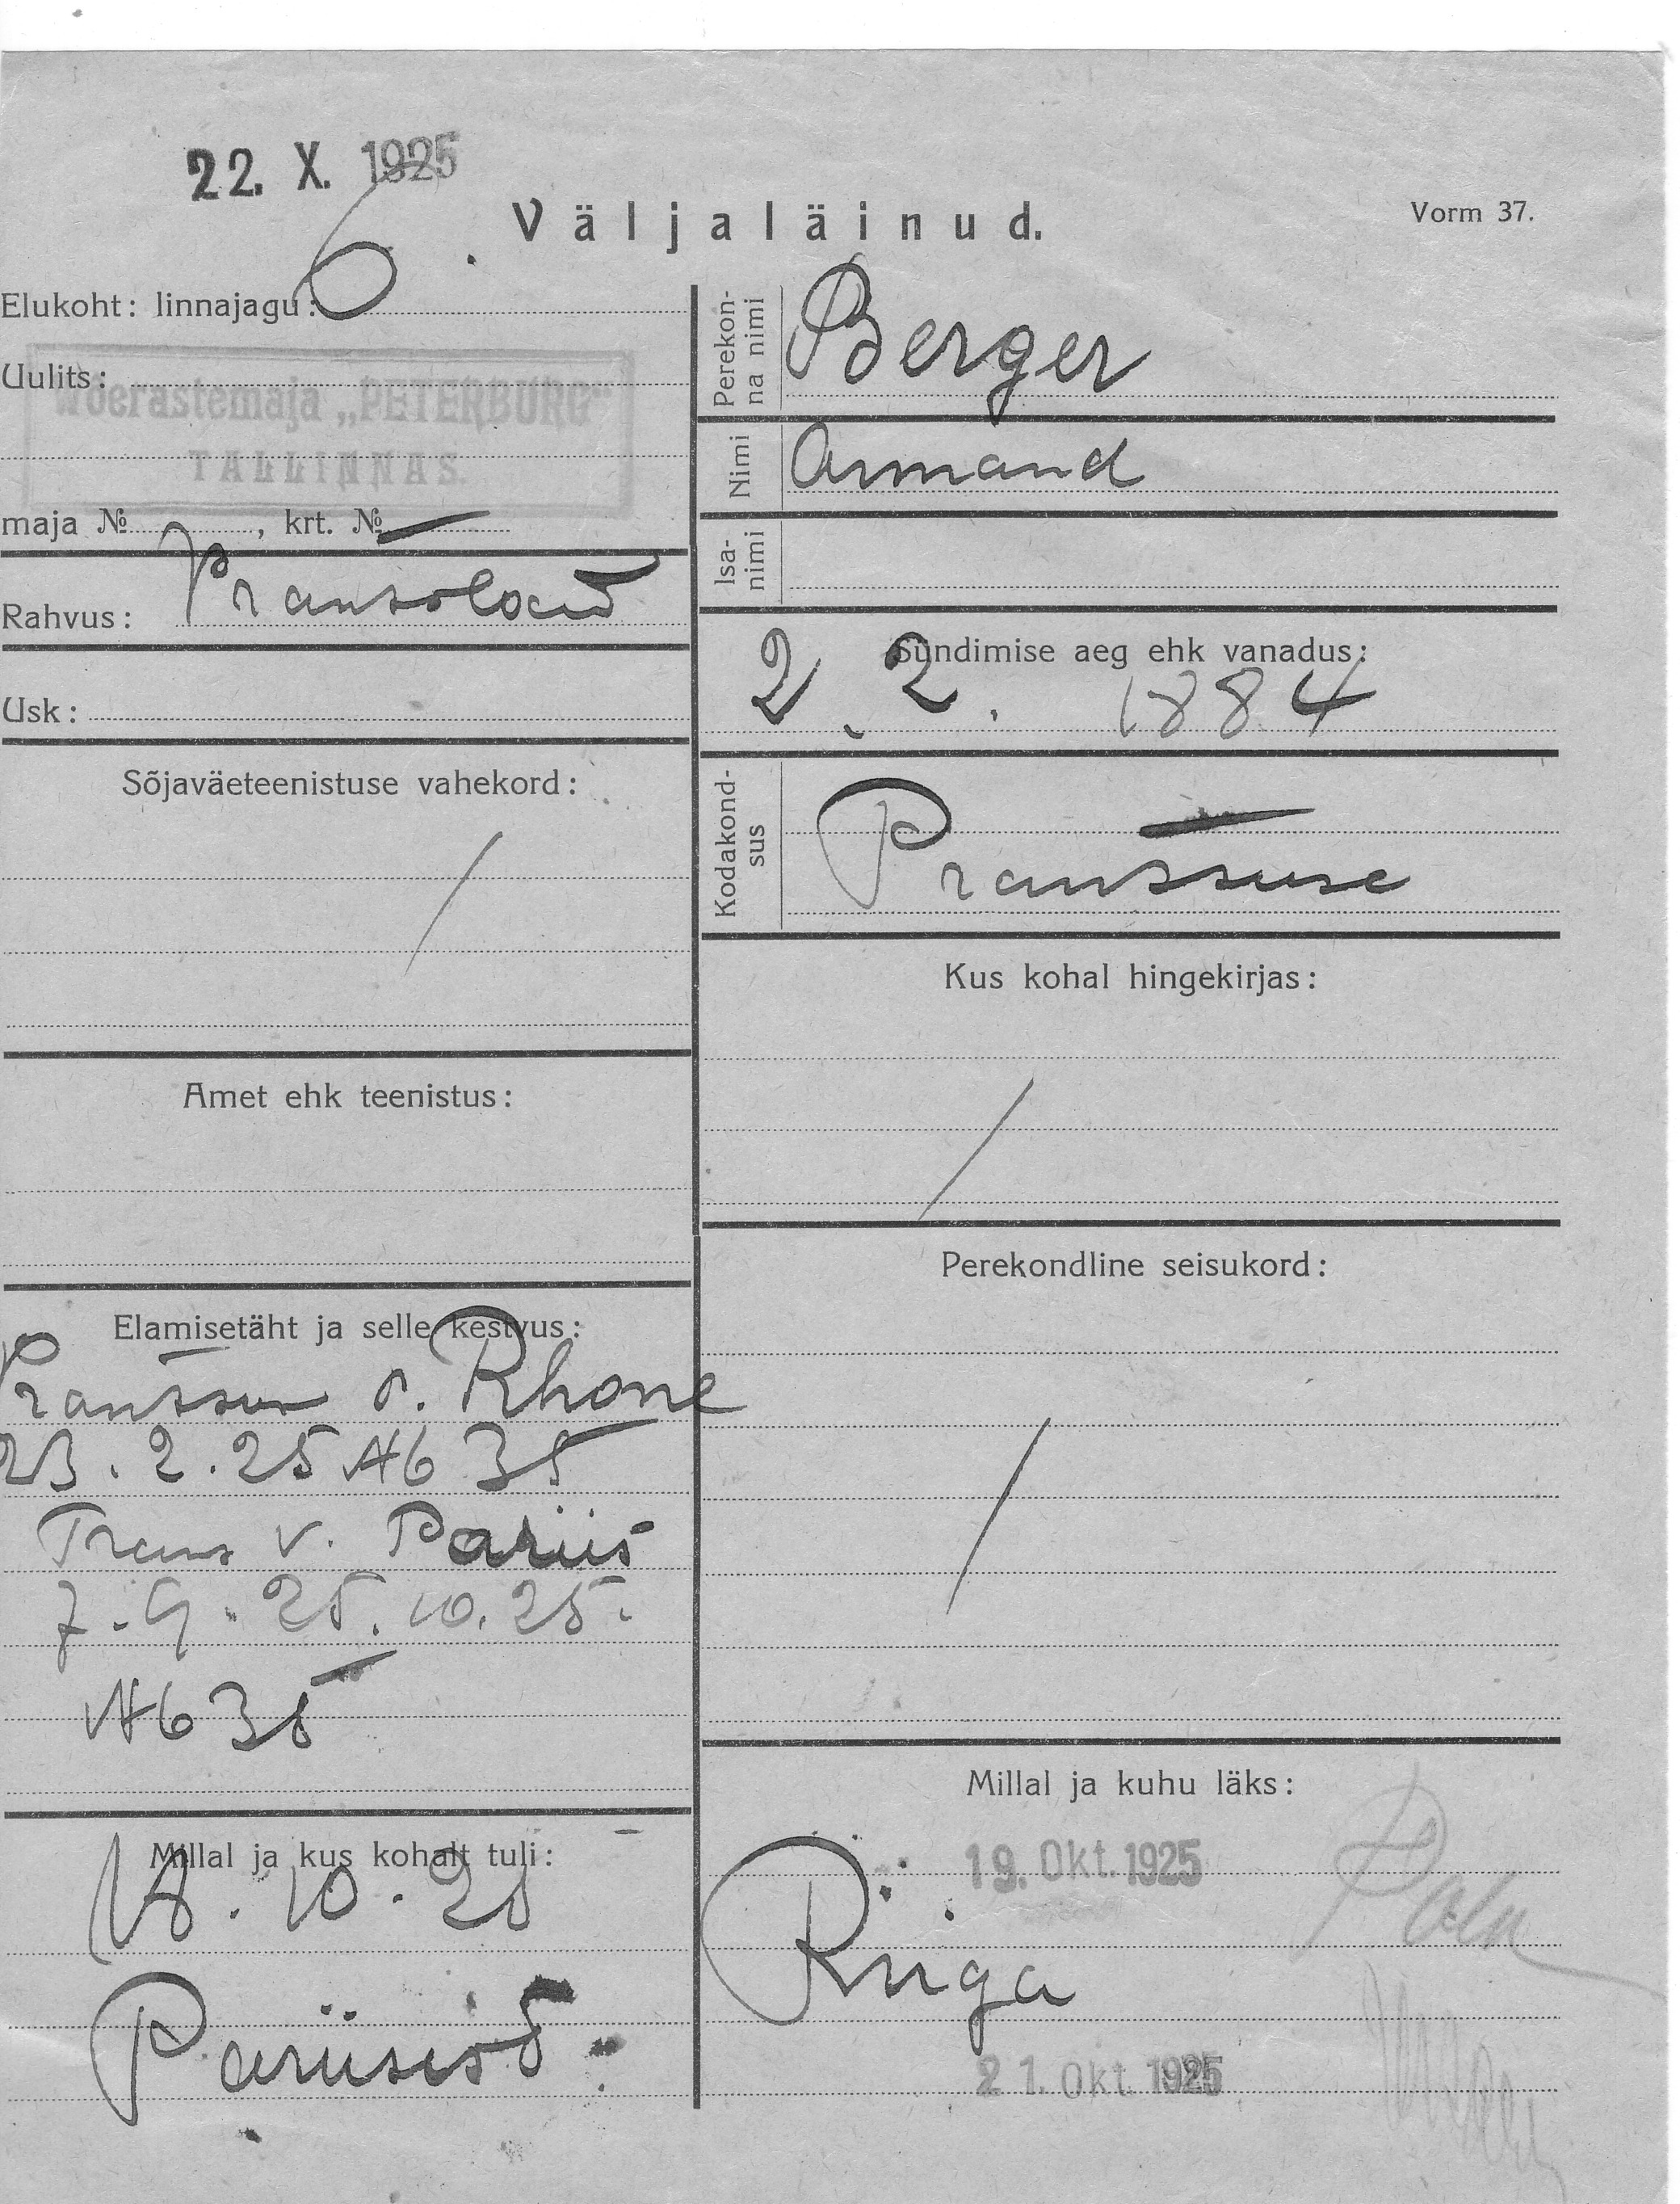 22. X. 1925
Väljaläinud.
Vorm 37.
Elukoht: linnajagu: 6
Uulits:
Võerastemaja „PETERBURG"
TALLINNAS.
maja № , krt. № —
Rahvus: Prantslased
Usk:
Sõjaväeteenistuse vahekord:
/
Amet ehk teenistus:
Elamisetäht ja selle kestvus:
Rhone
23.2.25 №635
v. Pariis
7.9.25. 10.25.
№635
Millal ja kus kohalt tuli:
18.10.25
Pariisist.
Perekonna nimi
Berger
Nimi
Armand
Isanimi
Sündimise aeg ehk vanadus:
2.2. 1884
Kodakondsus
Prantsuse
Kus kohal hingekirjas:
/
Perekondline seisukord:
/
Millal ja kuhu läks:
19. Okt. 1925
Riiga
21. Okt. 1925